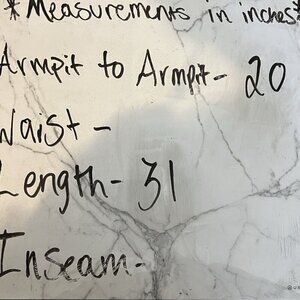 * Measurements in inches*
Armpit to Armpit- 20
Waist -
Length- 31
Inseam-